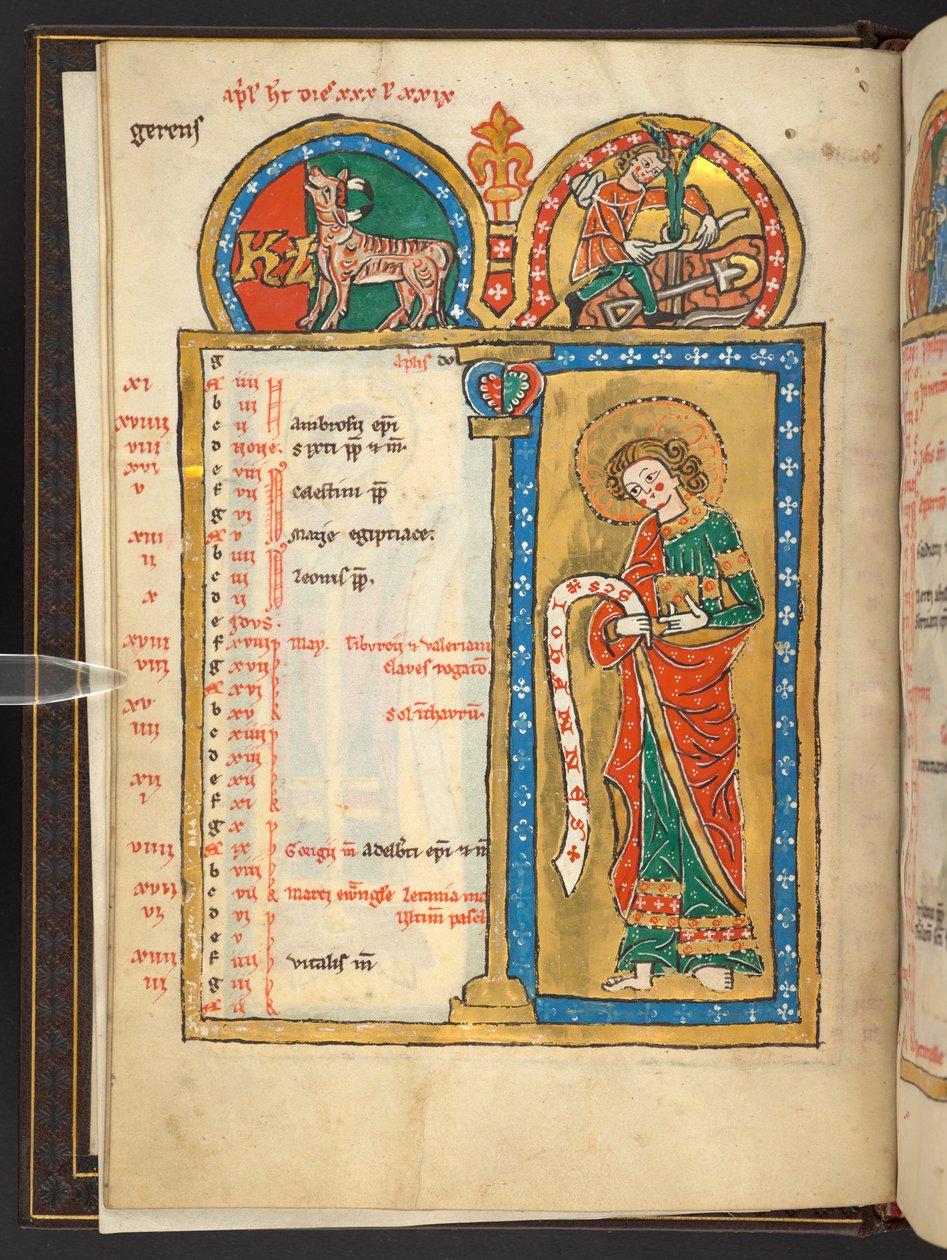 aꝑl' ht dies xxx l' xxix
gerens
KL
g aplis do
xi A iiii N
b iii
xviiii c ii ambrosii epi
viii d none. Sixti pp & m.
xvi e viii
v f vii caelstini pp
g vi
xiii A v Marie egiptiace.
ii b iiii
c iii Leonis pp.
x d ii
e Idus.
xviii f xviii May. Tiburcii & valeriani
vii g xvii claves rogatio.
A xvi
xv b xv Sol in thaurum
iiii c xiiii
d xiii
xii e xii
i f xi
g x
viiii A ix Georgii m adelberti epi & m
b viii
xvii c vii Marci ewangeliste Letania ma
vi d vi Ultimum pasch
e v
xiiii f iiii vitalis m
iii g iii
A ii
SCS IOHANNES